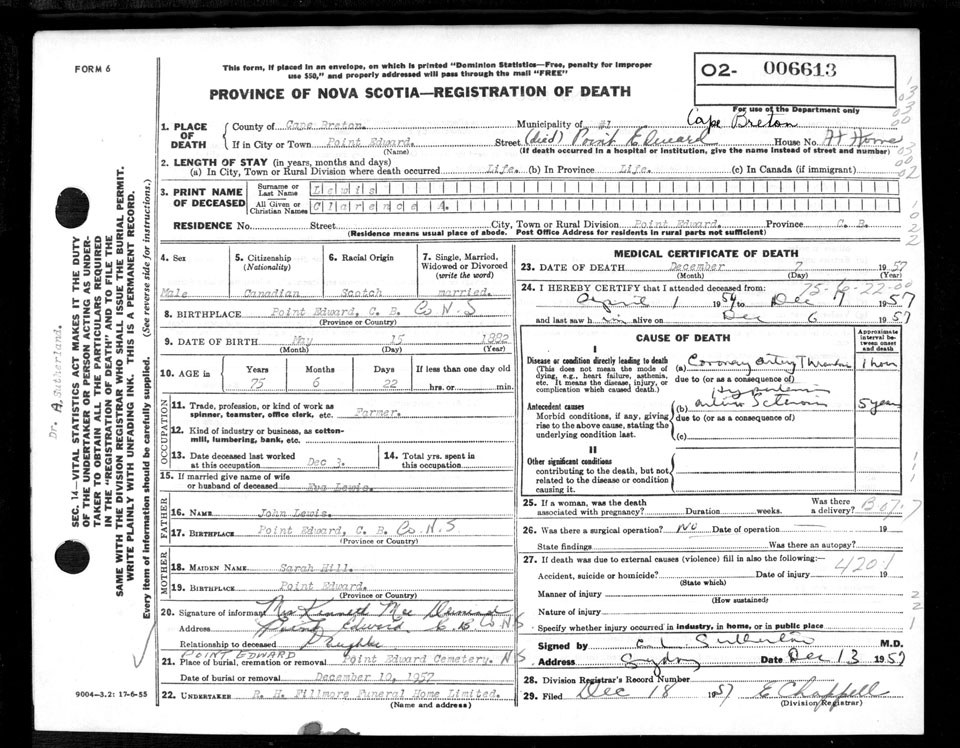 FORM 6
This form, if placed in an envelope, on which is printed "Dominion Statistics—Free, penalty for improper
use $50," and properly addressed will pass through the mail "FREE"
02- 006613
PROVINCE OF NOVA SCOTIA—REGISTRATION OF DEATH
For use of the Department only
Cape Breton
1. PLACE OF DEATH
County of Cape Breton. Municipality of #1
If in City or Town Point Edward. Street (did) Point Edward House No. At Home
(Name) (If death occurred in a hospital or institution, give the name instead of street and number)
2. LENGTH OF STAY (in years, months and days)
(a) In City, Town or Rural Division where death occurred Life. (b) In Province Life. (c) In Canada (if immigrant)
3. PRINT NAME OF DECEASED
Surname or Last Name Lewis
All Given or Christian Names Clarence A.
RESIDENCE No. Street City, Town or Rural Division Point Edward. Province C. B.
(Residence means usual place of abode. Post Office Address for residents in rural parts not sufficient)
4. Sex
Male
5. Citizenship
(Nationality)
Canadian
6. Racial Origin
Scotch
7. Single, Married, Widowed or Divorced
(write the word)
married.
8. BIRTHPLACE Point Edward, C. B. Co N.S
(Province or Country)
9. DATE OF BIRTH May 15 1882
(Month) (Day) (Year)
10. AGE in Years Months Days If less than one day old
75 6 22 hrs. or min.
OCCUPATION
11. Trade, profession, or kind of work as spinner, teamster, office clerk, etc. Farmer.
12. Kind of industry or business, as cotton-mill, lumbering, bank, etc.
13. Date deceased last worked at this occupation Dec 3.
14. Total yrs. spent in this occupation
15. If married give name of wife or husband of deceased Eva Lewis.
FATHER
16. Name John Lewis.
17. Birthplace Point Edward, C. B. Co. N.S
(Province or Country)
MOTHER
18. Maiden Name Sarah Hill.
19. Birthplace Point Edward.
(Province or Country)
20. Signature of informant Mrs Kenneth Mac
Address Point Edward C B Co N.S
Relationship to deceased Daughter
POINT EDWARD
21. Place of burial, cremation or removal Point Edward Cemetery. N.S.
Date of burial or removal December 10, 1957
22. Undertaker R. H. Fillmore Funeral Home Limited.
(Name and address)
MEDICAL CERTIFICATE OF DEATH
23. DATE OF DEATH December 7 1957
(Month) (Day) (Year)
75-6-22-00
24. I HEREBY CERTIFY that I attended deceased from:
April 1 1954 to Dec 7 1957
and last saw him alive on Dec 6 1957
CAUSE OF DEATH
Approximate interval between onset and death
I
Disease or condition directly leading to death
(This does not mean the mode of dying, e.g., heart failure, asthenia, etc. It means the disease, injury, or complication which caused death.)
(a) Coronary artery Thrombosis 1 hour
due to (or as a consequence of)
Antecedent causes
Morbid conditions, if any, giving rise to the above cause, stating the underlying condition last.
(b) 5 years
due to (or as a consequence of)
(c)
II
Other significant conditions
contributing to the death, but not related to the disease or condition causing it.
25. If a woman, was the death associated with pregnancy? Duration weeks. Was there a delivery?
26. Was there a surgical operation? No Date of operation 19
State findings Was there an autopsy?
27. If death was due to external causes (violence) fill in also the following:—
420.1
Accident, suicide or homicide? Date of injury 19
(State which)
Manner of injury
(How sustained)
Nature of injury
Specify whether injury occurred in industry, in home, or in public place
Signed by M.D.
Address Sydney Date Dec 13 1957
28. Division Registrar's Record Number
29. Filed Dec 18 1957 E Chappell
(Division Registrar)
9004-3.2: 17-6-55
Dr. A. Sutherland.
SEC. 14—VITAL STATISTICS ACT MAKES IT THE DUTY
OF THE UNDERTAKER OR PERSON ACTING AS UNDER-
TAKER TO OBTAIN ALL THE PARTICULARS REQUIRED
IN THE "REGISTRATION OF DEATH" AND TO FILE THE
SAME WITH THE DIVISION REGISTRAR WHO SHALL ISSUE THE BURIAL PERMIT.
WRITE PLAINLY WITH UNFADING INK. THIS IS A PERMANENT RECORD.
Every item of information should be carefully supplied. (See reverse side for instructions.)